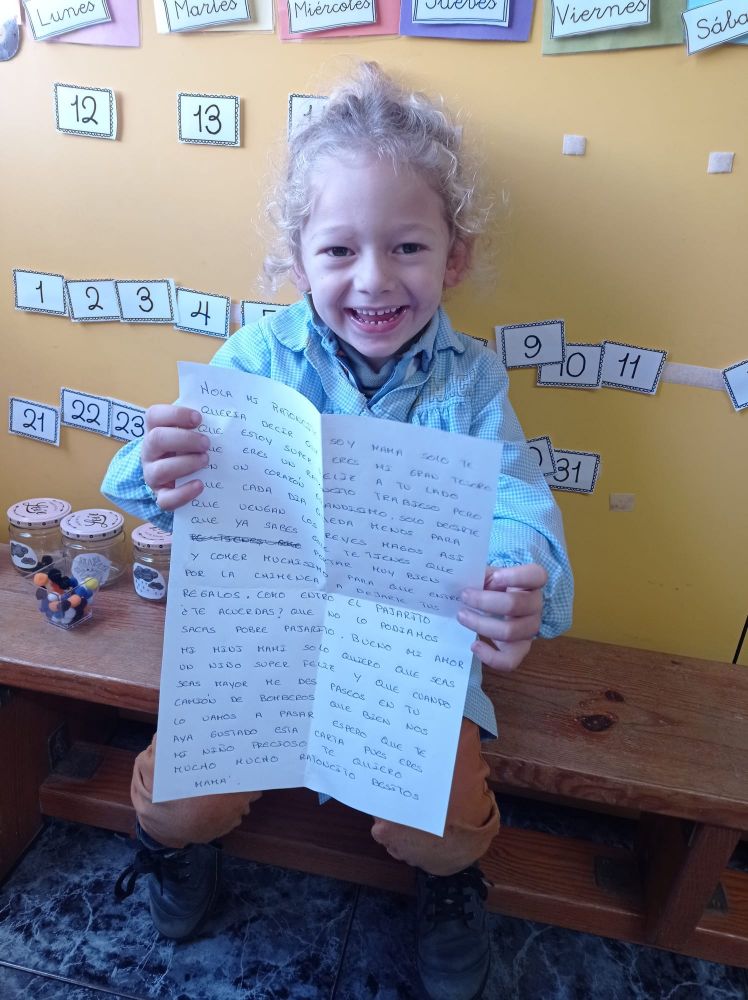 Lunes
Martes
Miércoles
Jueves
Viernes
Sába
12
13
1
2
3
4
9
10
11
21
22
23
31
HOLA MI RATONCITO SOY MAMA SOLO TE
QUERIA DECIR QUE ERES MI GRAN TESORO
QUE ESTOY SUPER FELIZ A TU LADO
QUE ERES UN RATONCITO TRABIESO PERO
CON UN CORAZÓN GRANDISIMO. SOLO DECIRTE
QUE CADA DIA QUEDA MENOS PARA
QUE VENGAN LOS REYES MAGOS ASI
QUE YA SABES QUE TE TIENES QUE
PORTAR MUY BIEN
Y COMER MUCHISIMO PARA QUE ENTREN
POR LA CHIMENEA A DEJARTE TUS
REGALOS. COMO ENTRO EL PAJARITO
¿TE ACUERDAS? QUE NO LO PODIAMOS
SACAS POBRE PAJARITO. BUENO MI AMOR
MI MINI MAMI SOLO QUIERO QUE SEAS
UN NIÑO SUPER FELIZ Y QUE CUANDO
SEAS MAYOR ME DES PASEOS EN TU
CAMIÓN DE BOMBEROS QUE BIEN NOS
LO VAMOS A PASAR ESPERO QUE TE
AYA GUSTADO ESTA CARTA PUES ERES
MI NIÑO PRECIOSO TE QUIERO
MUCHO MUCHO RATONCITO BESITOS
MAMA.